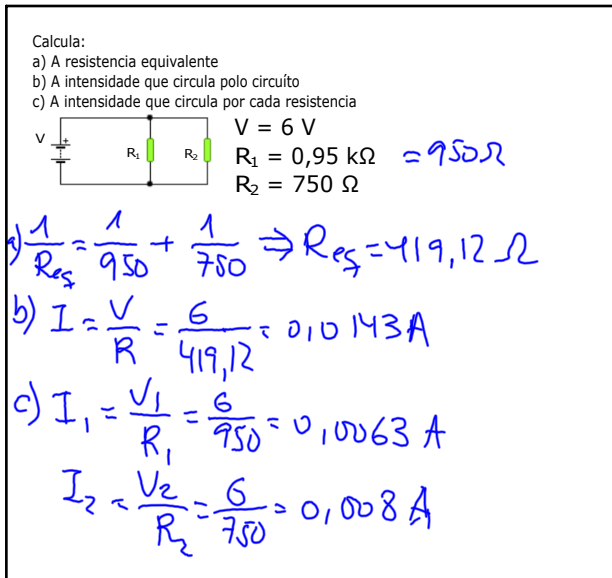 Calcula:
a) A resistencia equivalente
b) A intensidade que circula polo circuíto
c) A intensidade que circula por cada resistencia
V R₁ R₂
V = 6 V
R₁ = 0,95 kΩ = 950 Ω
R₂ = 750 Ω
a) 1/Req = 1/950 + 1/750 ⇒ Req = 419,12 Ω
b) I = V/R = 6/419,12 = 0,0143 A
c) I₁ = V₁/R₁ = 6/950 = 0,0063 A
I₂ = V₂/R₂ = 6/750 = 0,008 A